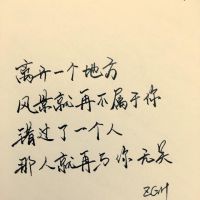 离开一个地方
风景就再不属于你
错过了一个人
那人就再与你无关
ZGH